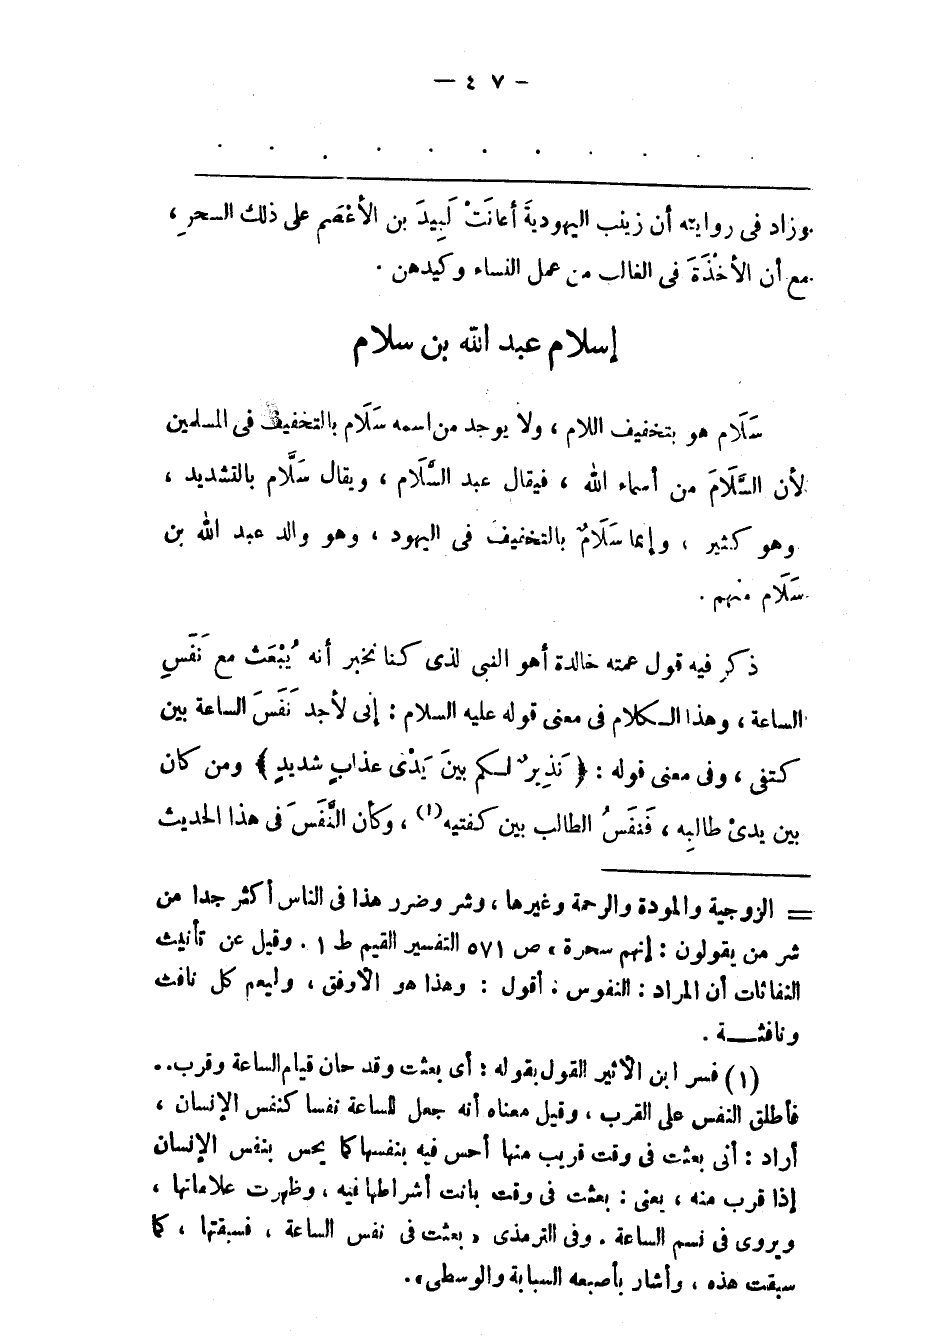 — ٤٧ —
. . . . . . . . . . .
وزاد فى روايته أن زينب اليهودية أعانَتْ لَبِيدَ بن الأعْصَم على ذلك السحرِ ،
مع أن الأُخْذَةَ فى الغالب من عمل النساء وكيدهن .
إسلام عبد الله بن سلام
سَلَام هو بتخفيف اللام ، ولا يوجد من اسمه سَلَام بالتخفيف فى المسلمين
لأن السَّلَامَ من أسماء الله ، فيقال عبد السَّلَام ، ويقال سَلَّام بالتشديد ،
وهو كثير ، وإنما سَلَامٌ بالتخفيف فى اليهود ، وهو والد عبد الله بن
سَلَام منهم .
ذكر فيه قول عمته خالدة أهو النبى لذى كنا نخبر أنه يُبْعَث مع نَفَسِ
الساعة ، وهذا الكلام فى معنى قوله عليه السلام : إنى لأجد نَفَسَ الساعة بين
كتفى ، وفى معنى قوله : ﴿ نَذِيرٌ لكم بينَ يَدَىْ عذابٍ شديدٍ ﴾ ومن كان
بين يدىْ طالبِه ، فَنَفَسُ الطالب بين كتفيه (١) ، وكأن النَّفَسَ فى هذا الحديث
= الزوجية والمودة والرحمة وغيرها ، وشر وضرر هذا فى الناس أكثر جدا من
شر من يقولون : إنهم سحرة ، ص ٥٧١ التفسير القيم ط ١ . وقيل عن تأنيث
النفاثات أن المراد : النفوس . أقول : وهذا هو الأوفق ، وليعم كل نافث
ونافثـــة .
(١) فسر ابن الأثير القول بقوله : أى بعثت وقد حان قيام الساعة وقرب ..
فأطلق النفس على القرب ، وقيل معناه أنه جعل للساعة نفسا كنفس الإنسان ،
أراد : أنى بعثت فى وقت قريب منها أحس فيه بنفسها كما يحس بنفس الإنسان
إذا قرب منه ، يعنى : بعثت فى وقت بانت أشراطها فيه ، وظهرت علاماتها ،
ويروى فى نسم الساعة . وفى الترمذى « بعثت فى نفس الساعة ، فسبقتها ، كما
سبقت هذه ، وأشار بأصبعه السبابة والوسطى » .